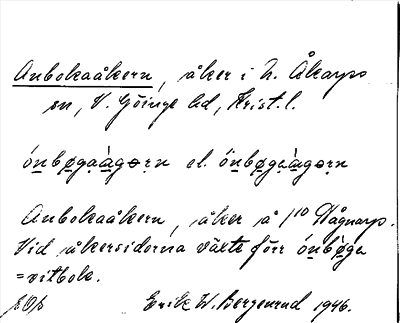 Anbokaåkern, åker i N. Åkarps
sn, V. Göinge hd, Krist. l.
ónbøgaàgǝrn el. ònbøgaàgǝrn
Anbokaåkern, åker å 1/10 Vågnarp.
Vid åkersidorna växte förr ónbøga
=vitbok.
Erik W. Bergenrud 1946.